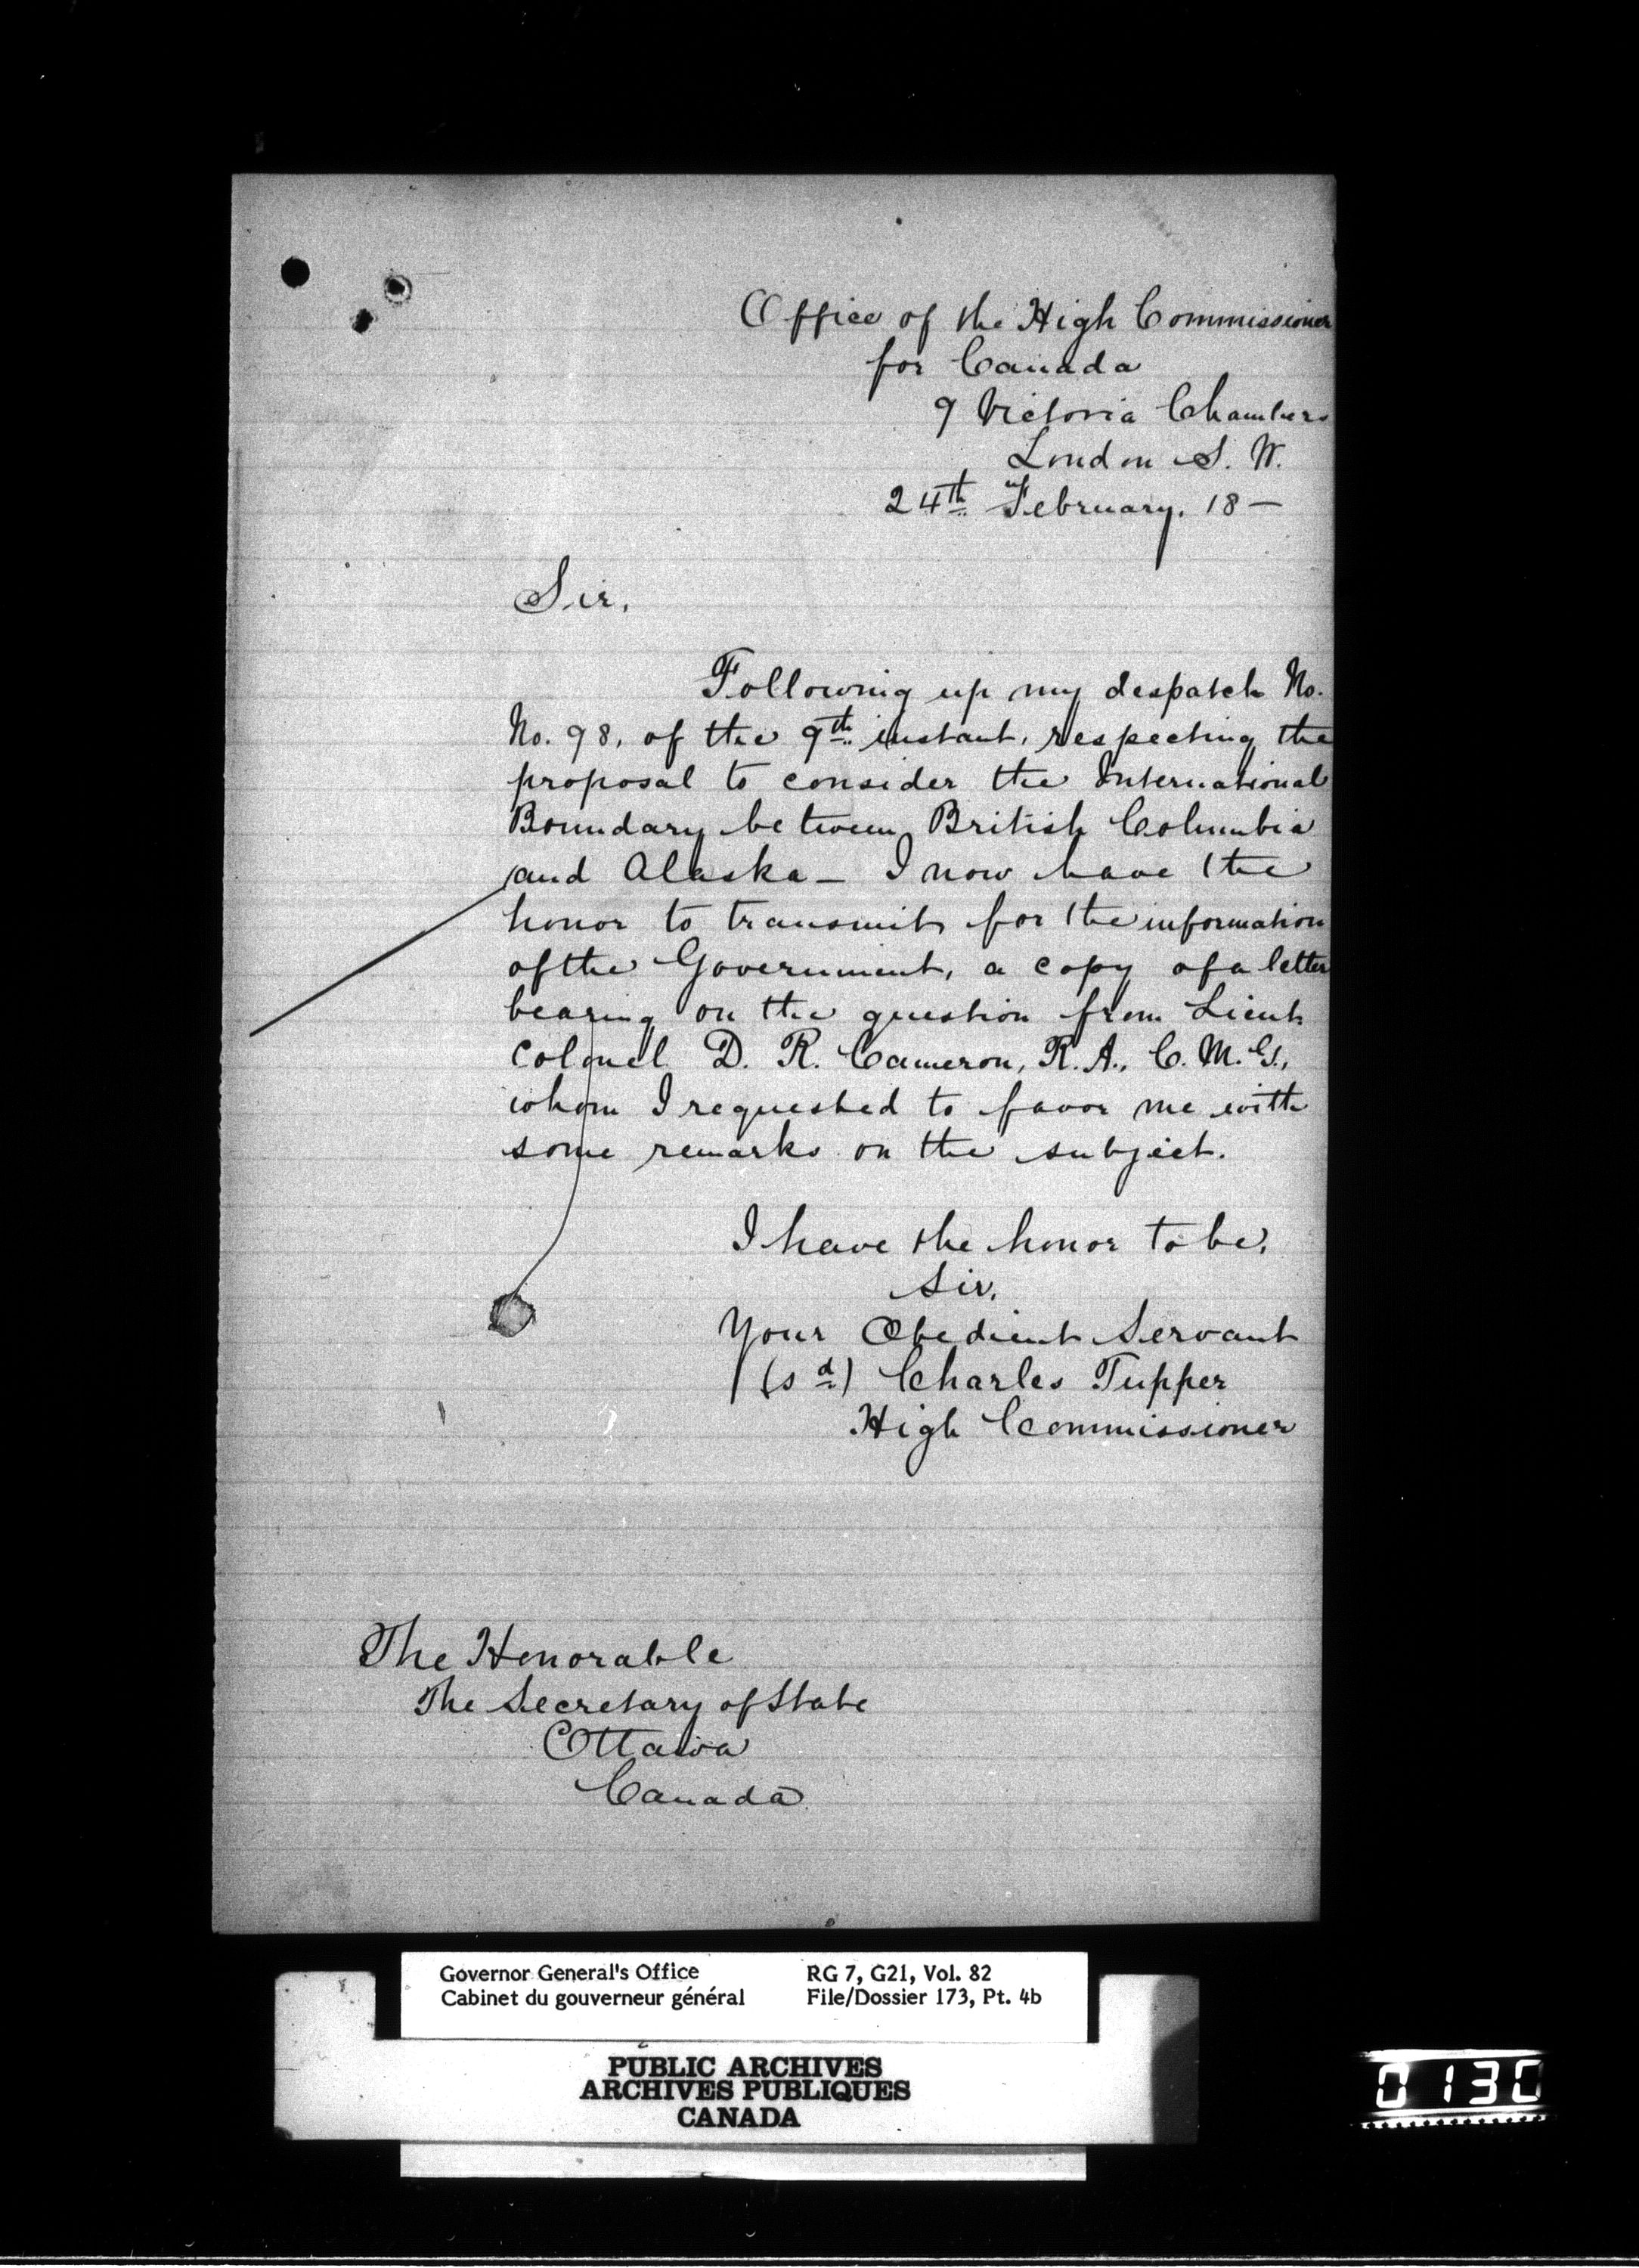 Office of the High Commissioner
for Canada
9 Victoria Chambers
London S. W.
24th February. 18—
Sir,
Following up my despatch No.
No. 98, of the 9th instant, respecting the
proposal to consider the International
Boundary between British Columbia
and Alaska — I now have the
honor to transmit for the information
of the Government, a copy of a letter
bearing on the question from Lieut
Colonel D. R. Cameron, R.A., C.M.G.,
whom I requested to favor me with
some remarks on the subject.
I have the honor to be,
Sir,
Your Obedient Servant
(sd) Charles Tupper
High Commissioner
The Honorable
The Secretary of State
Ottawa
Canada
Governor General's Office RG 7, G21, Vol. 82
Cabinet du gouverneur général File/Dossier 173, Pt. 4b
PUBLIC ARCHIVES
ARCHIVES PUBLIQUES
CANADA
0130